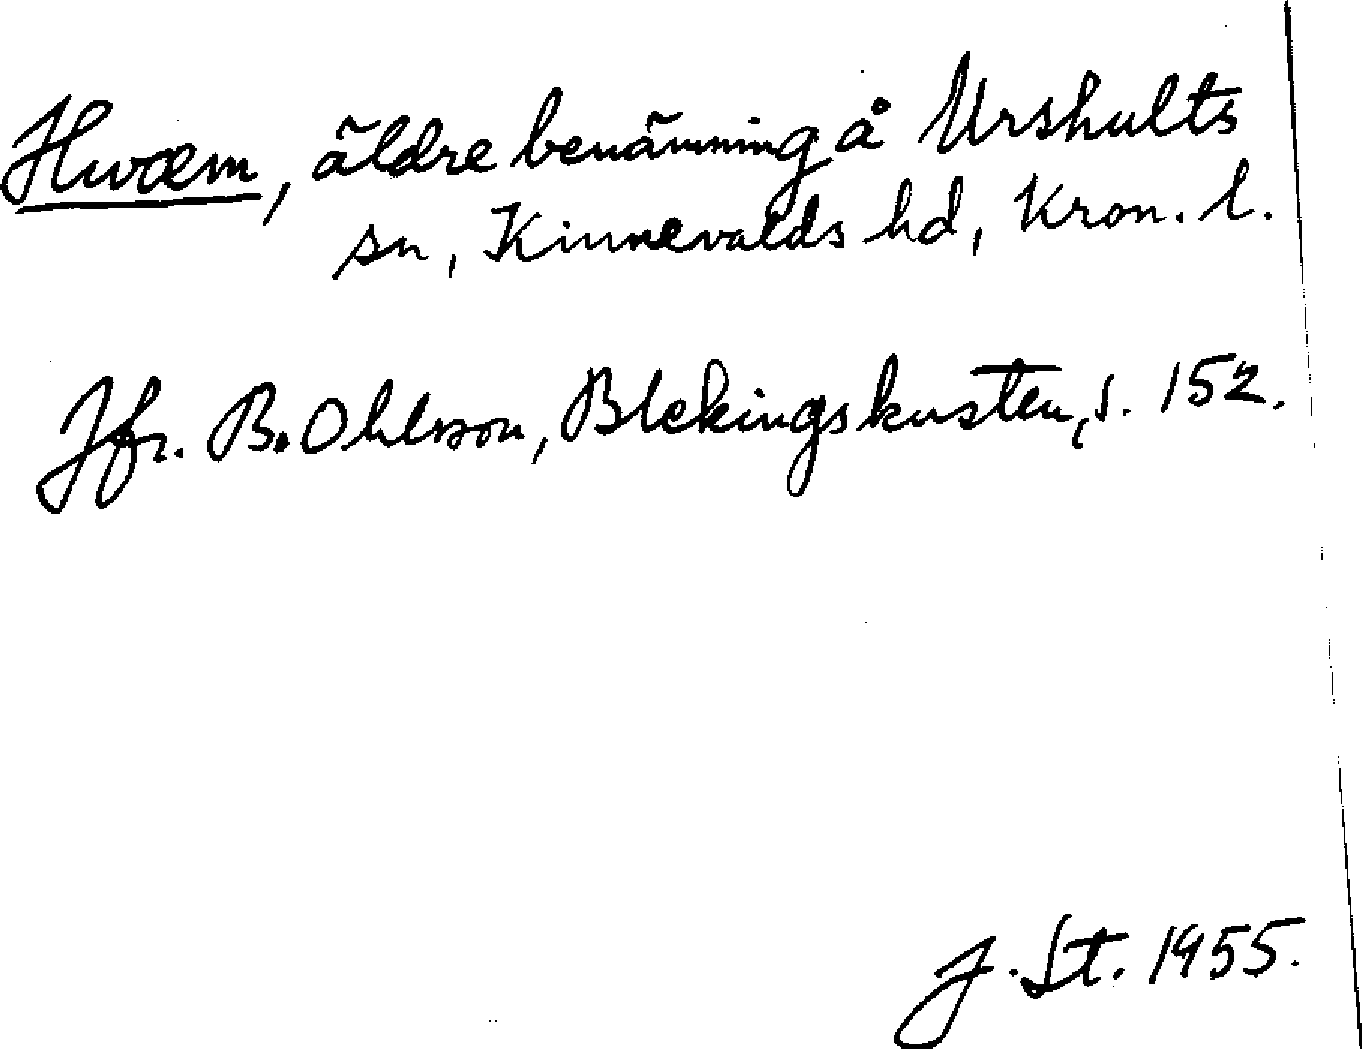 Hwæm, äldre benämning å Urshults
sn, Kinnevalds hd, Kron. l.
Jfr. B. Ohlsson, Blekingskusten, s. 152.
J. St. 1955.